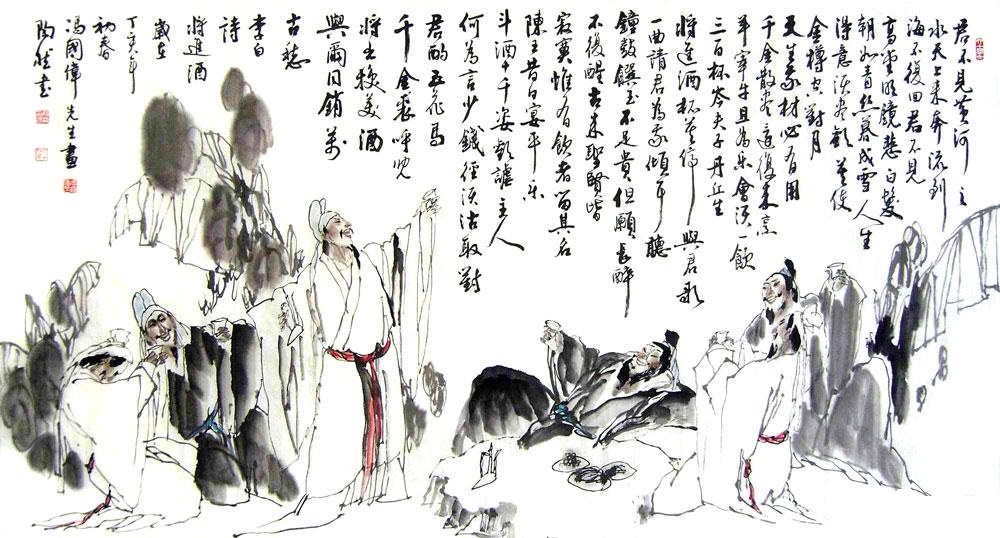 君不見黃河之
水天上來奔流到
海不復回君不見
高堂明鏡悲白髮
朝如青絲暮成雪人生
得意須盡歡莫使
金樽空對月
天生我材必有用
千金散盡還復來烹
羊宰牛且為樂會須一飲
三百杯岑夫子丹丘生
將進酒杯莫停與君歌
一曲請君為我傾耳聽
鐘鼓饌玉不足貴但願長醉
不復醒古來聖賢皆
寂寞惟有飲者留其名
陳王昔日宴平樂
斗酒十千姿歡謔主人
何為言少錢徑須沽取對
君酌五花馬
千金裘呼兒
將出換美酒
與爾同銷萬
古愁
李白
詩
將進酒
歲在
丁亥年
初春
馮國偉先生畫
陶然書